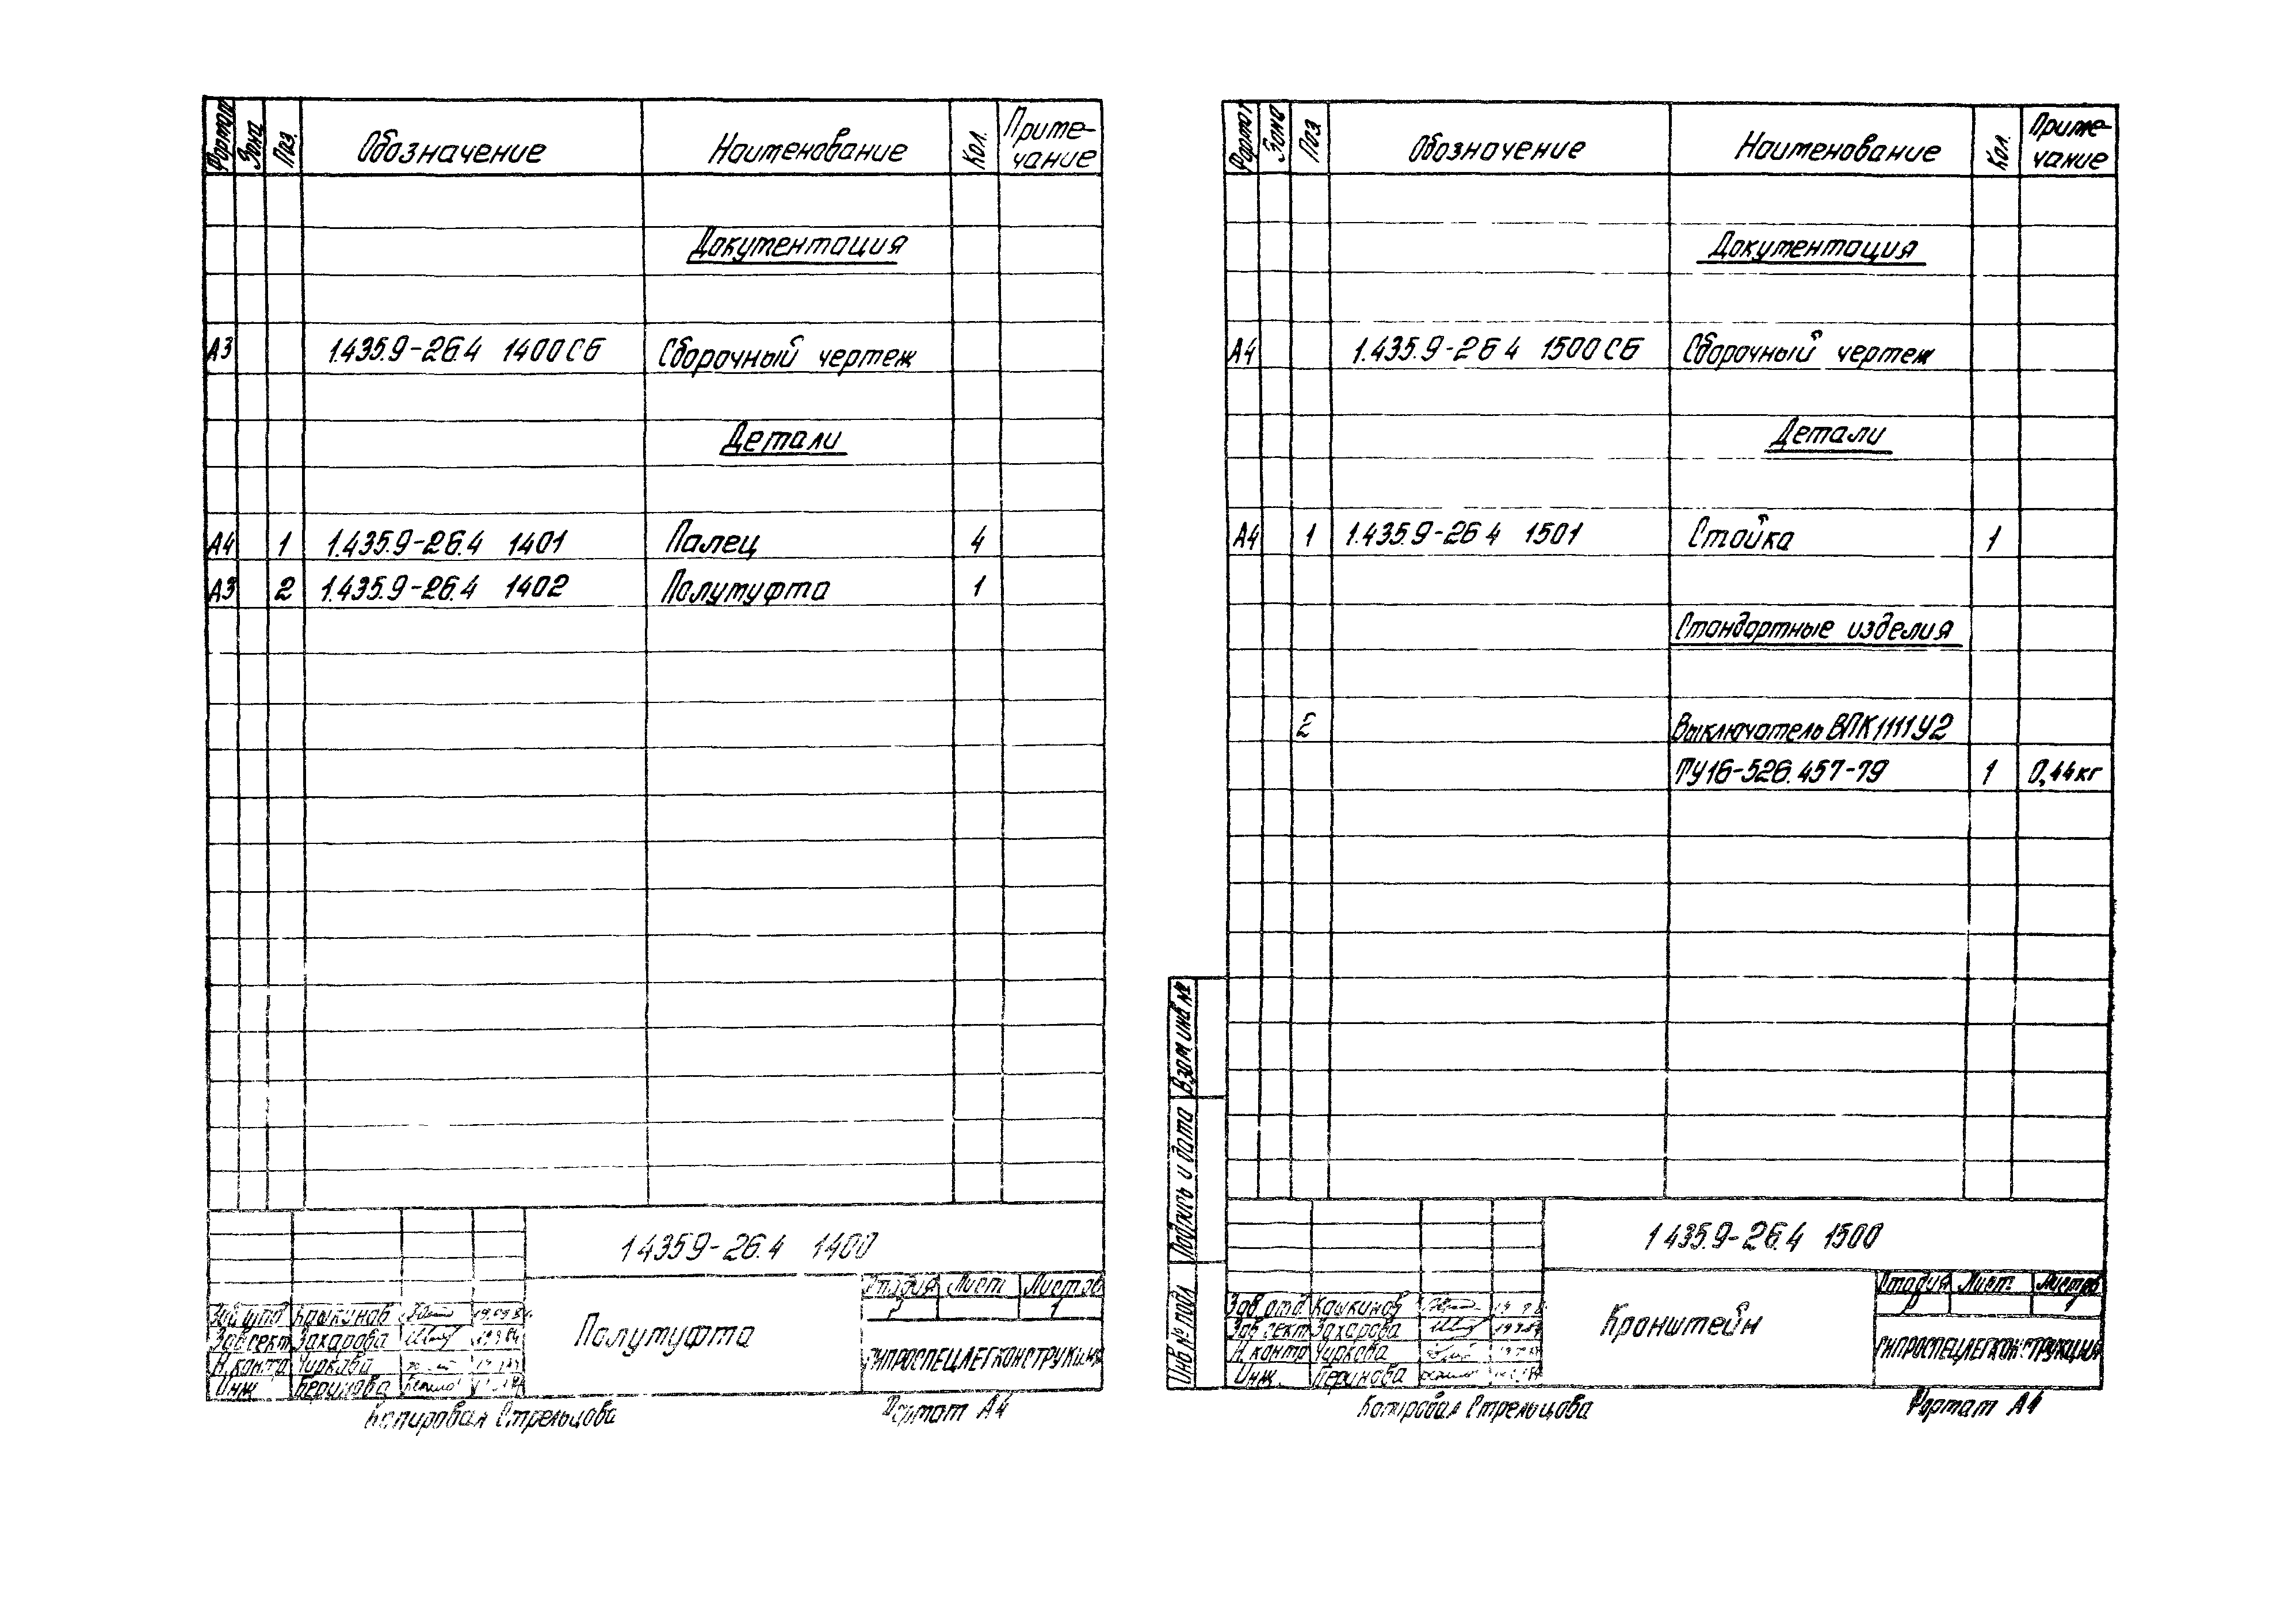 Формат Зона Поз. Обозначение Наименование Кол. Приме-
чание
Документация
А3 1.435.9-26.4 1400СБ Сборочный чертеж
Детали
А4 1 1.435.9-26.4 1401 Палец 4
А3 2 1.435.9-26.4 1402 Полумуфта 1
1 435 9-26.4 1400
Полумуфта
Стадия Лист Листов
Р 1
Кашкинов
Зав сект Захарова
Н.контр Чиркова
Инж
ГИПРОСПЕЦЛЕГКОНСТРУКЦИЯ
Копировал Стрельцова Формат А4
Формат Зона Поз Обозначение Наименование Кол. Приме-
чание
Документация
А4 1.435.9-26 4 1500СБ Сборочный чертеж
Детали
А4 1 1.435.9-26 4 1501 Стойка 1
Стандартные изделия
2 Выключатель ВПК1111У2
ТУ16-526.457-79 1 0,44кг
Взам инв №
Подпись и дата
Инв № подл
1 435.9-26.4 1500
Кронштейн
Стадия Лист Листов
Р 1
Зав. отд. Кашкинов
Зав сект Захарова
Н. контр Чиркова
Инж.
ГИПРОСПЕЦЛЕГКОНСТРУКЦИЯ
Копировал Стрельцова Формат А4